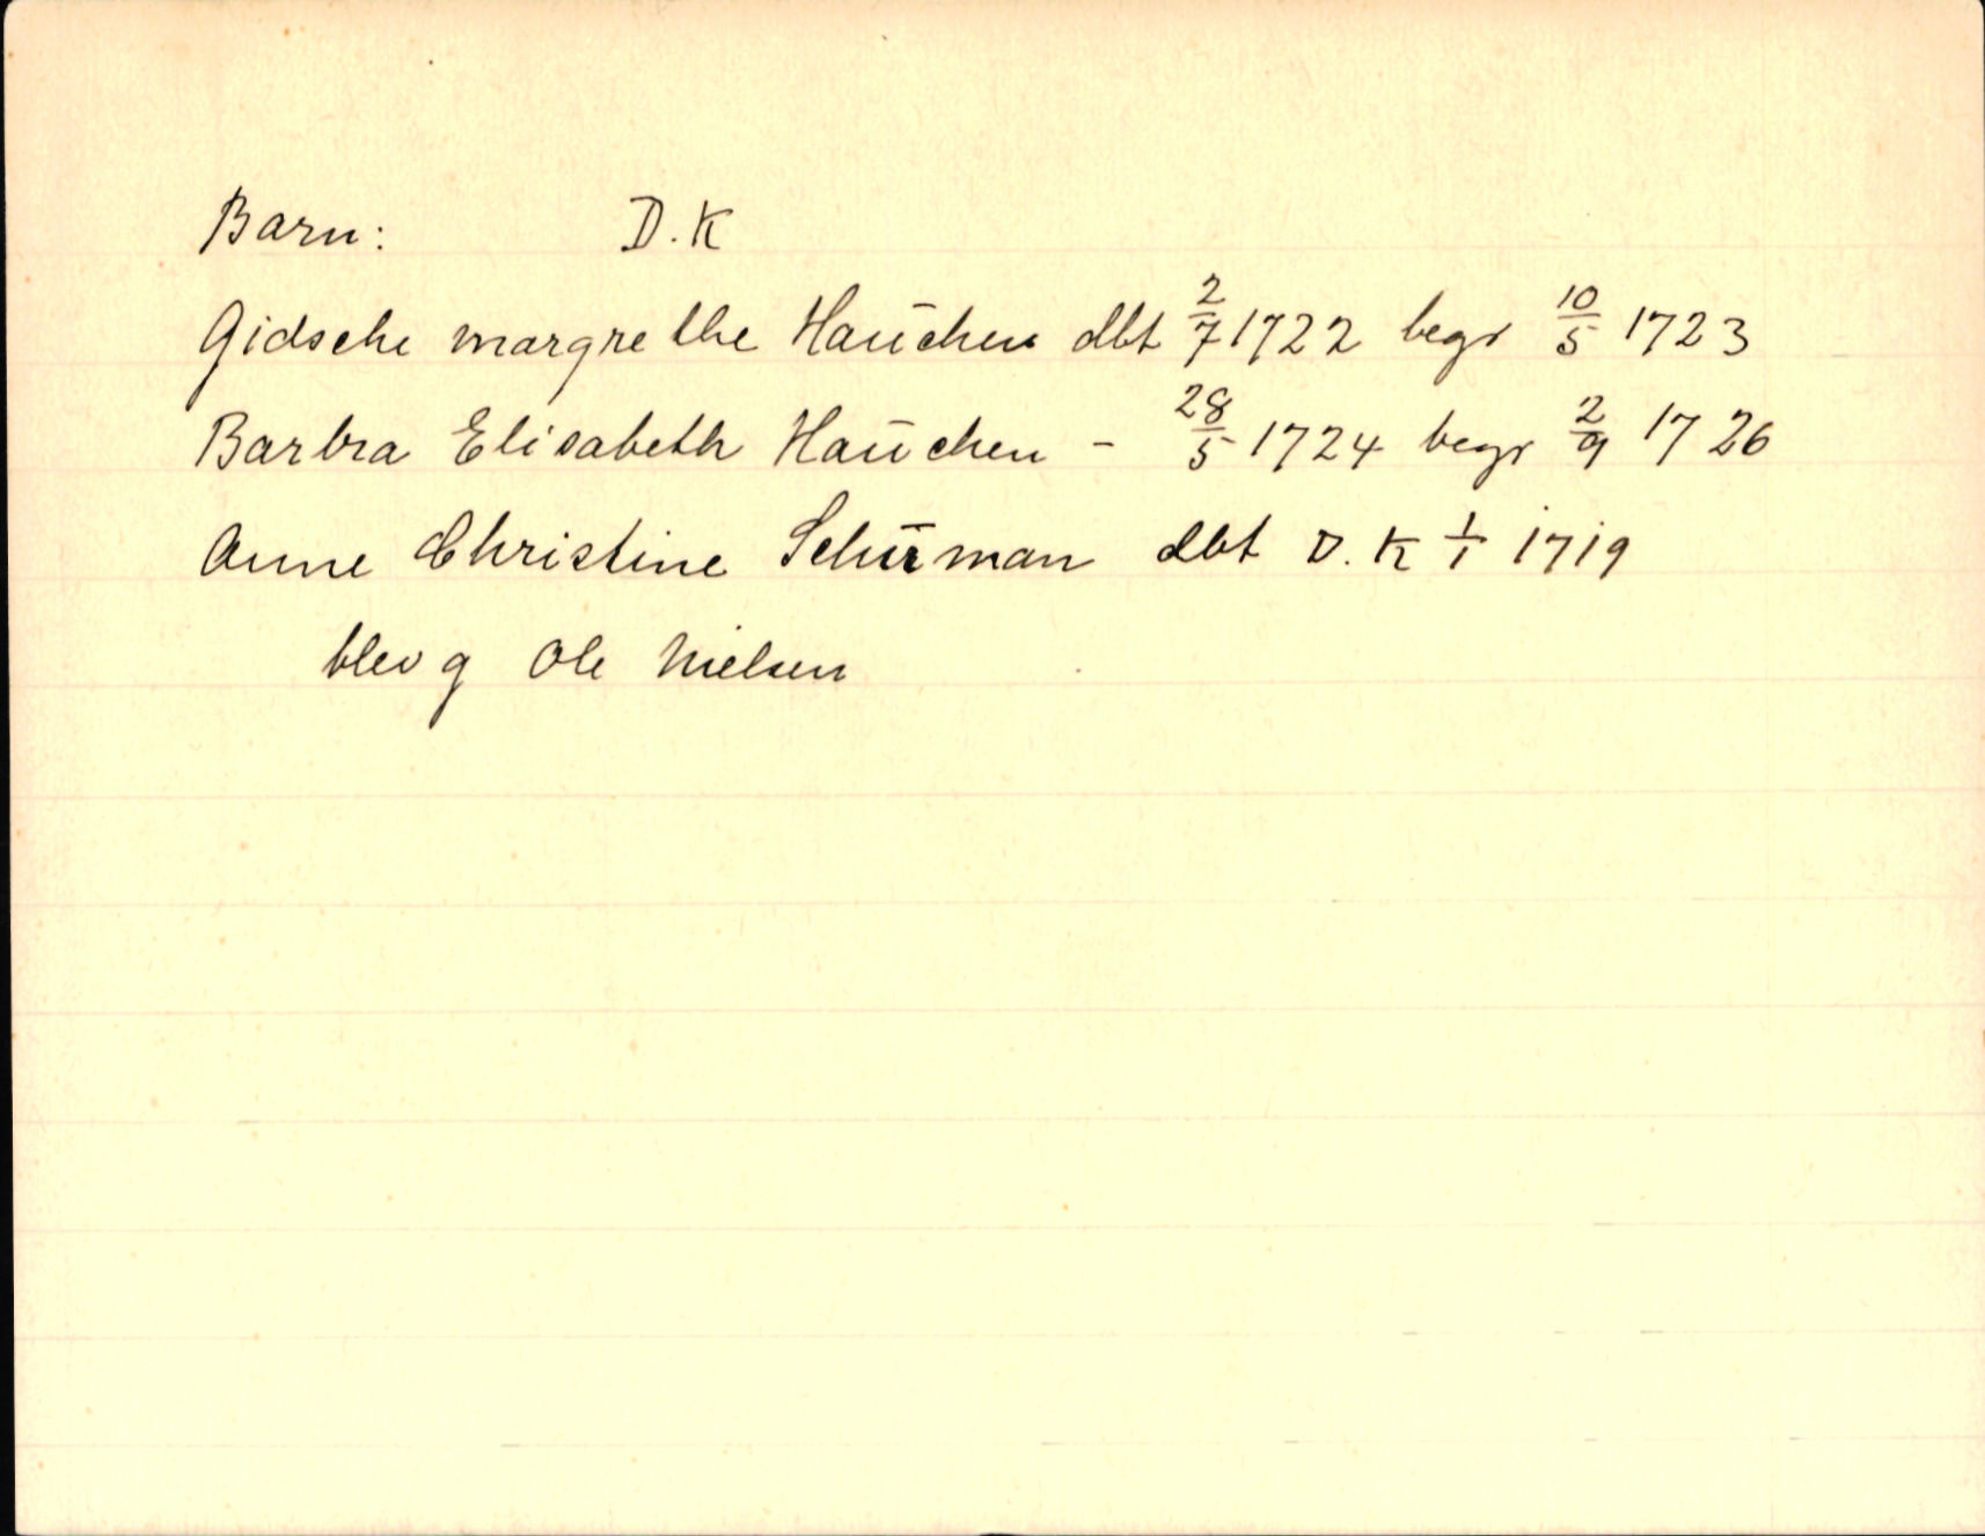 Barn: D.K
Gidsche margrethe Haūchen dbt 2/7 1722 begr 10/5 1723
Barbra Elisabeth Haūchen - 28/5 1724 begr 2/9 1726
Anne Christine Schūrman dbt D.K 1/1 1719
blev g Ole Nielsen